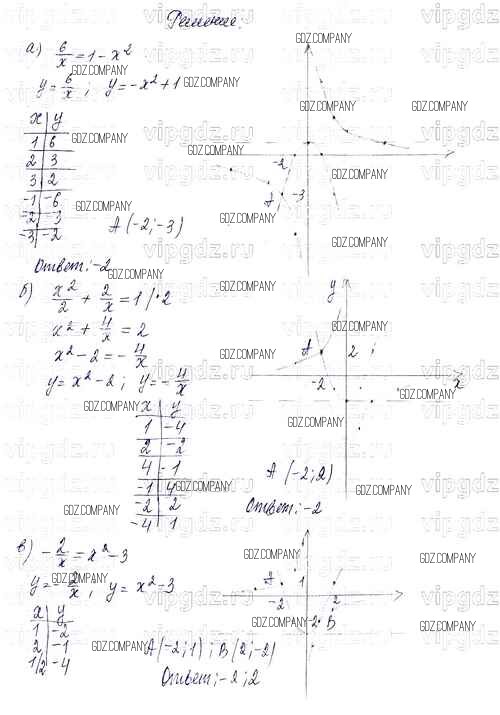 Решение.
а) 6/x = 1 - x²
y = 6/x ; y = -x² + 1
x | y
1 | 6
2 | 3
3 | 2
-1 | -6
-2 | -3
-3 | -2
A (-2; -3)
-2
A
-3
Ответ: -2
б) x²/2 + 2/x = 1 | · 2
x² + 4/x = 2
x² - 2 = - 4/x
y = x² - 2 ; y = - 4/x
x | y
1 | -4
2 | -2
4 | -1
-1 | 4
-2 | 2
-4 | 1
y
A
2
-2
x
A (-2; 2)
Ответ: -2
в) - 2/x = x² - 3
y = - 2/x , y = x² - 3
x | y
1 | -2
2 | -1
1/2 | -4
A
1
-2
2
-2
B
A (-2; 1) ; B (2; -2)
Ответ: -2; 2
GDZ.COMPANY
vipgdz.ru